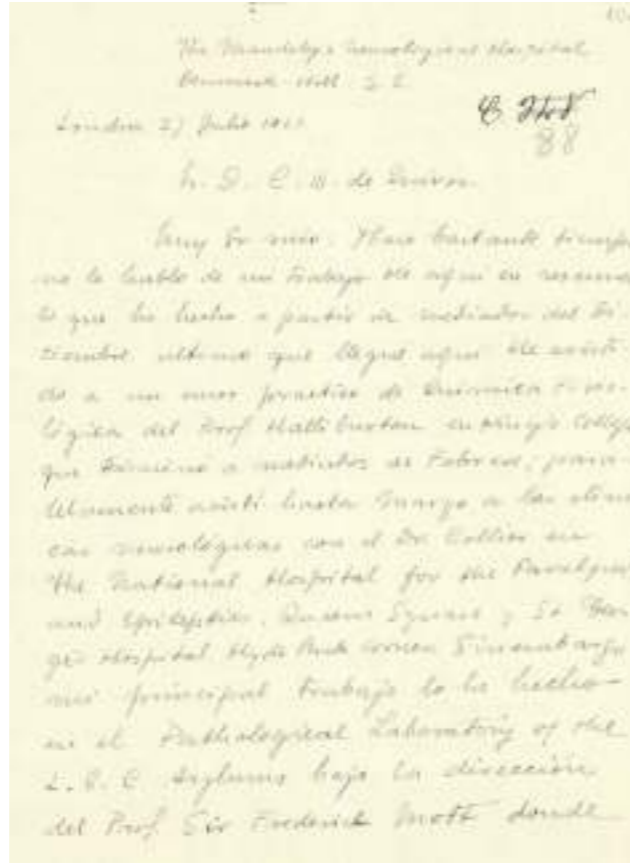 The Maudsley Neurological Hospital
Denmark Hill S. E.
88
London 27 Julio
de
Muy Sr mio. Hace bastante tiempo
no le hablo de mi trabajo de aqui en
lo que he hecho a partir de mediados del Di-
ciembre ultimo que llegué aqui He asisti-
do a un curso practico de Quimica Fisio-
lógica del Prof Halliburton en King's College
que terminó a mediados de Febrero; para-
lelamente asisti hasta Marzo a las clini-
cas neurológicas con el Dr Collier en
the National Hospital for the Paralysed
and Epileptics. Queens Square y St Geor-
ges Hospital. Hyde Park Corner Sin embargo
mi principal trabajo lo he hecho
en el Pathological Laboratory of the
L. C. C Asylums bajo la dirección
del Prof. Sir Frederick Mott donde